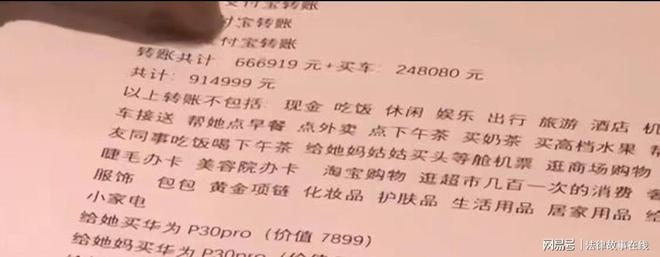 支付宝转账
付宝转账
付宝转账
转账共计: 666919 元+买车: 248080 元
共计: 914999 元
以上转账不包括: 现金 吃饭 休闲 娱乐 出行 旅游 酒店 机
车接送 帮她点早餐 点外卖 点下午茶 买奶茶 买高档水果 帮
友同事吃饭喝下午茶 给她妈姑姑买头等舱机票 逛商场购物
睫毛办卡 美容院办卡 淘宝购物 逛超市几百一次的消费 奢
服饰 包包 黄金项链 化妆品 护肤品 生活用品 居家用品 给
小家电
给她买华为 P30pro (价值 7899)
给她妈买华为 P30pro (价值
网易号 | 法律故事在线